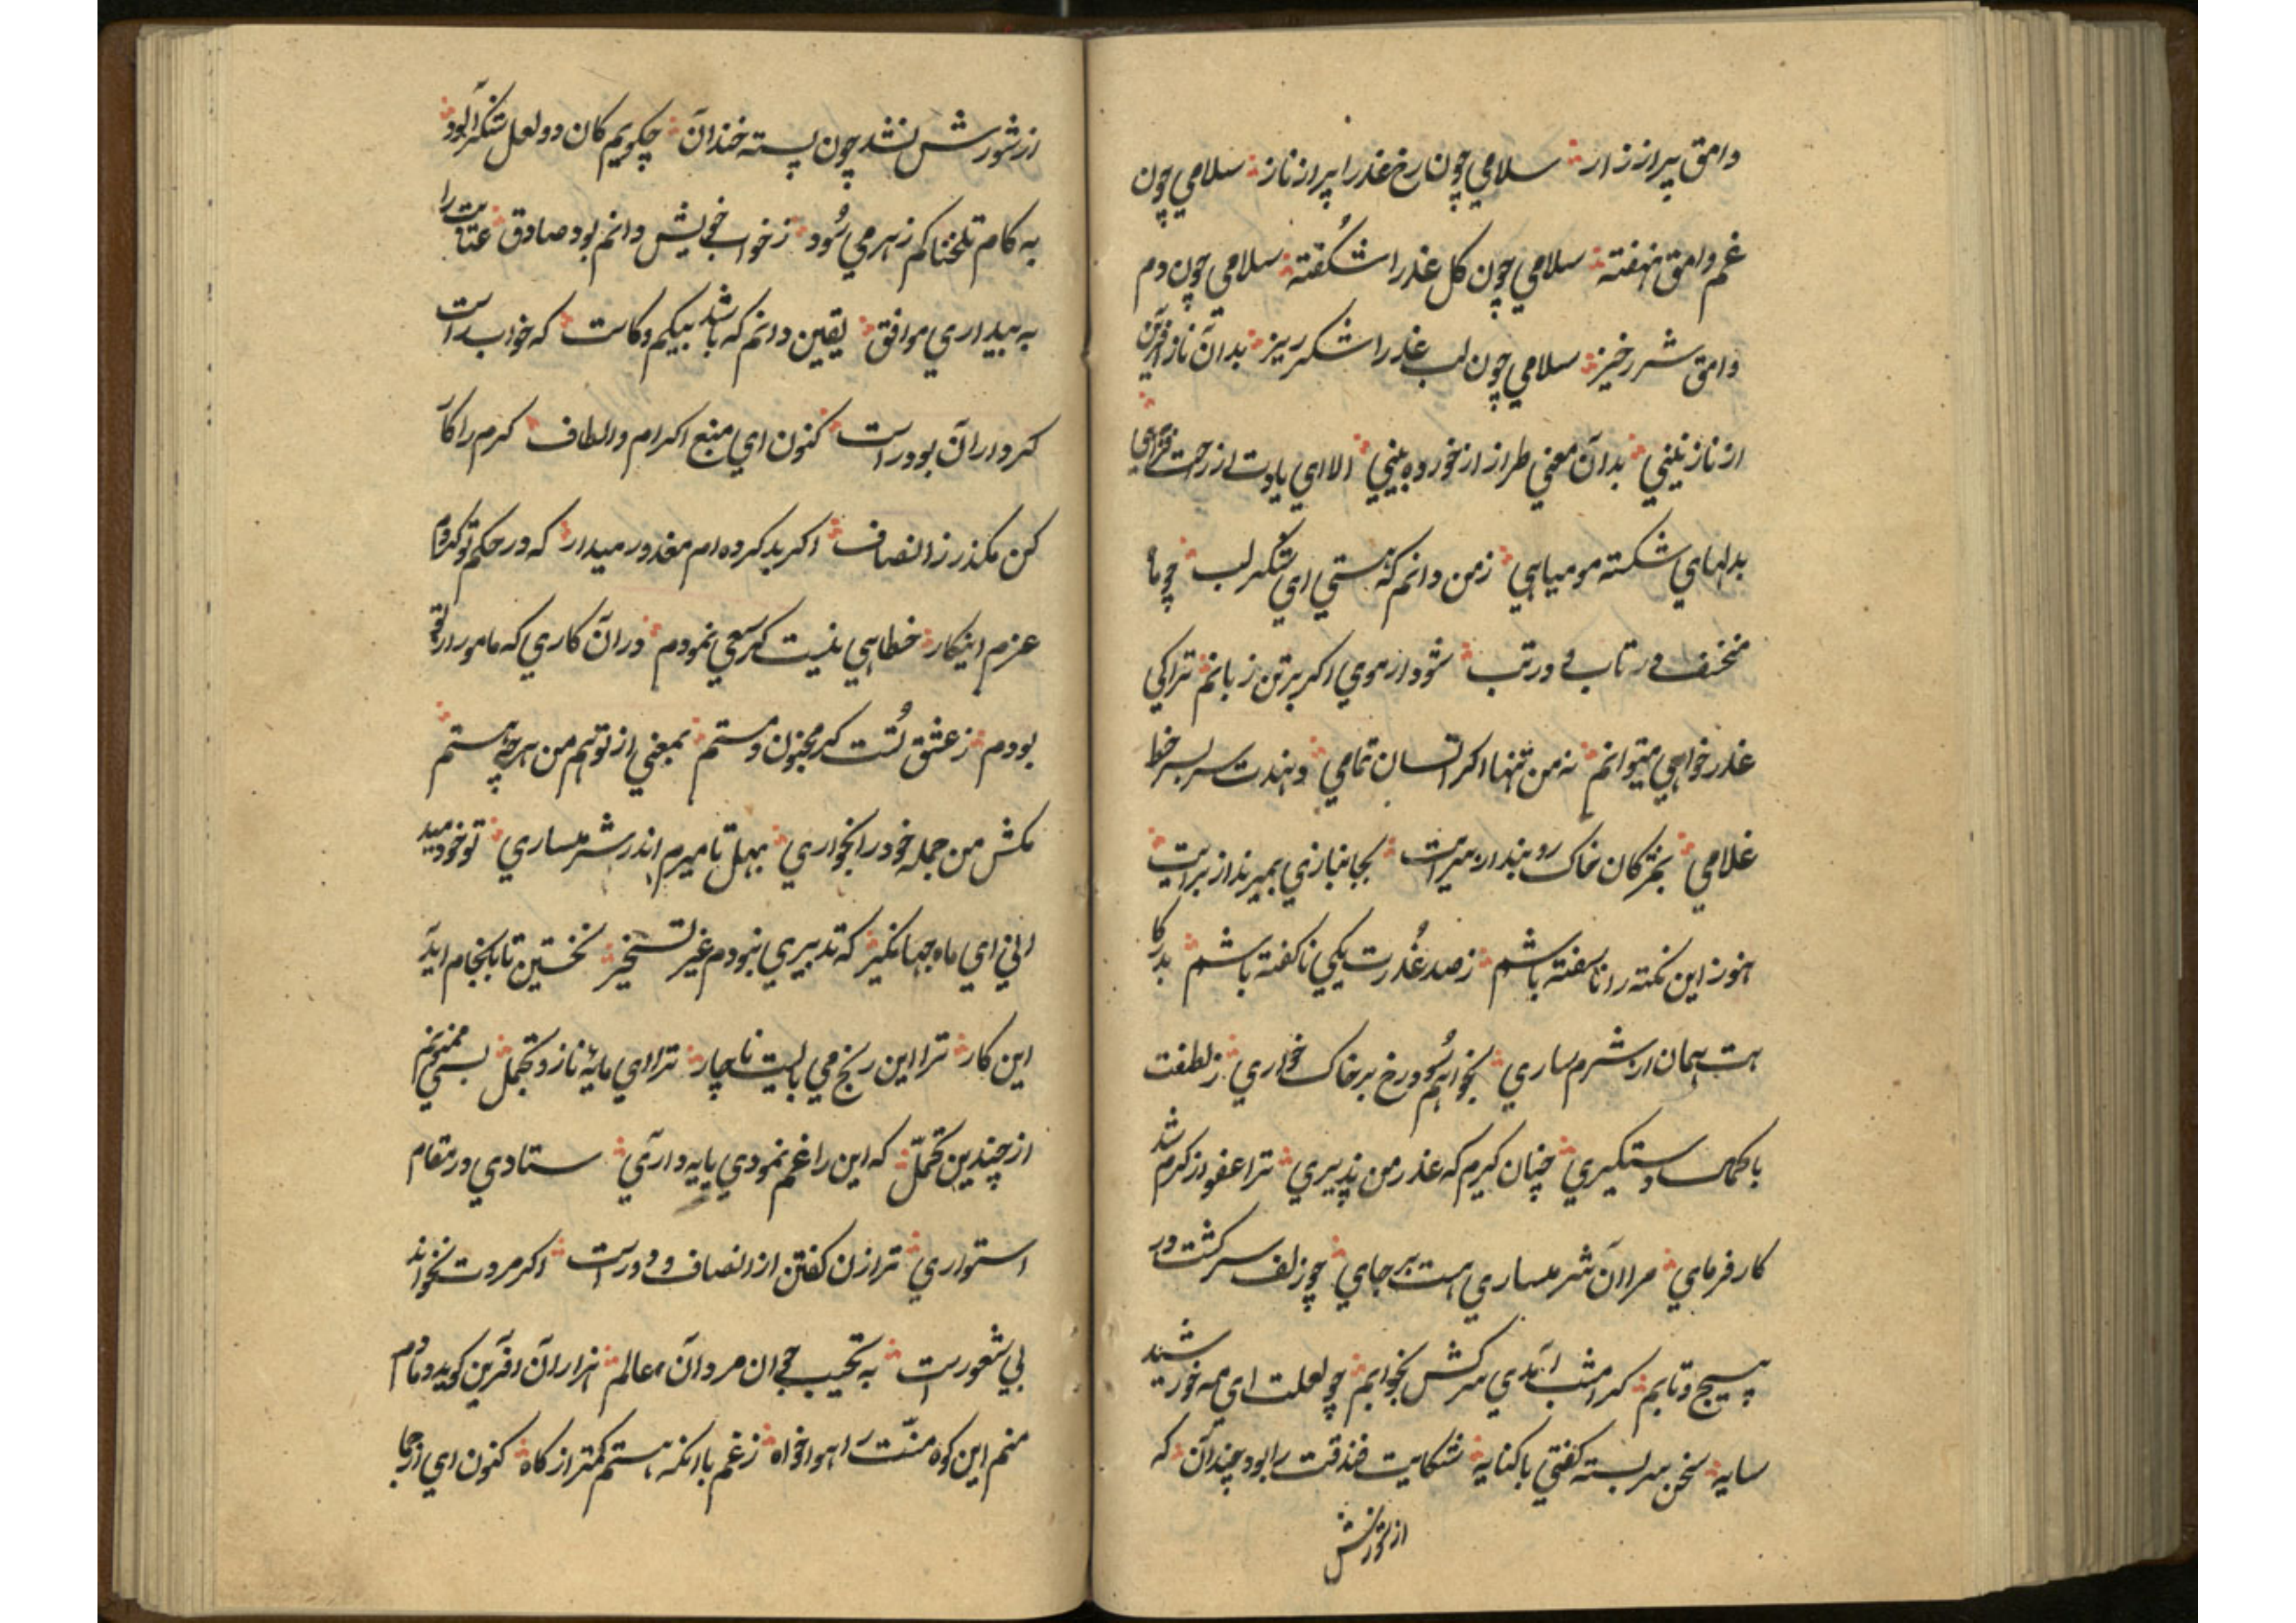 وامق پر از زار سلامي چون رخ عذرا پر از ناز سلامي چون
غم وامق نهفته سلامي چون کل عذرا شکفته سلامي چون دم
وامق شررخیز سلامي چون لب عذرا شکرریز بدان ناز آفرین
از نازنیني بدان معني طراز از خورده بیني الا اي یادت از رحمت
بدلهاي شکسته مومیاہي زمن دانم که هستي اي شکر لب چو ما
منخسف در تاب و در تب شود ار هموي اکر بر تن زبانم ترا کي
عذرخواهي میتوانم نه من تنها اکر انسان تمامي دهندت سر بسر خط
غلامي بمژکان خاک روبند از سرایت بجانبازي بمیرند از برایت
هنوز این نکته را ناسفته باشم زصد عذرت یکي ناکفته باشم بدرکا
هت همان از شرمساري بخواهم سود رخ بر خاک خواري زلطفت
با کمال دستکیري چنان کیرم که عذر من پذیري ترا عفو از کرم شد
کارفرماي مرا آن شرمساري هست بر جاي چو زلف سرکشت در
پیچ و تابم کر امشب آمدي سرکش بخوابم چو لعلت اي مه خورشید
سایه سخن سربسته کفتي با کنایه شکایت فندقت را بود چندان که
از شورش
از شورش نشد چون پسته خندان چکویم کان دو لعل شکرآلود
به کام تلخناکم زهر مي سود زخواب خویش دانم بود صادق عتابت را
به بیداري موافق یقین دانم که باشد بیکم و کاست که خواب راست
کرداران بود راست کنون اي منبع اکرام و الطاف کرم را کار
کن مکذر ز انصاف اکر بد کرده ام معذور میدار که در حکم تو کردم
عزم اینکار خطاہي نیست کر سعي نمودم در آن کاري که مامور از تو
بودم زعشق تست کر مجنون و مستم بمعني از تو هم من هرچه هستم
مکش من جمله خود را بخواري بهل تا میرم اندر شرمساري تو خود مید
اني اي ماه جهانکیر که تدبیري نبودم غیر تسخیر نخستین تا بکنجام آید
این کار ترا این رنج مي بایست ناچار ترا اي مایهٔ ناز و تجمل بسي ممنونم
از چندین تحمل که این را غم نمودي پایه داري ستادي در مقام
استواري ترا زن کفتن از انصاف دور است اکر مردت نخواند
بي شعور است به تحیب جوان مردان عالم هزاران آفرین کوید دمادم
منم این کوه منت را هواخواه زغم با انکه هستم کمتر از کاه کنون اي ازجا